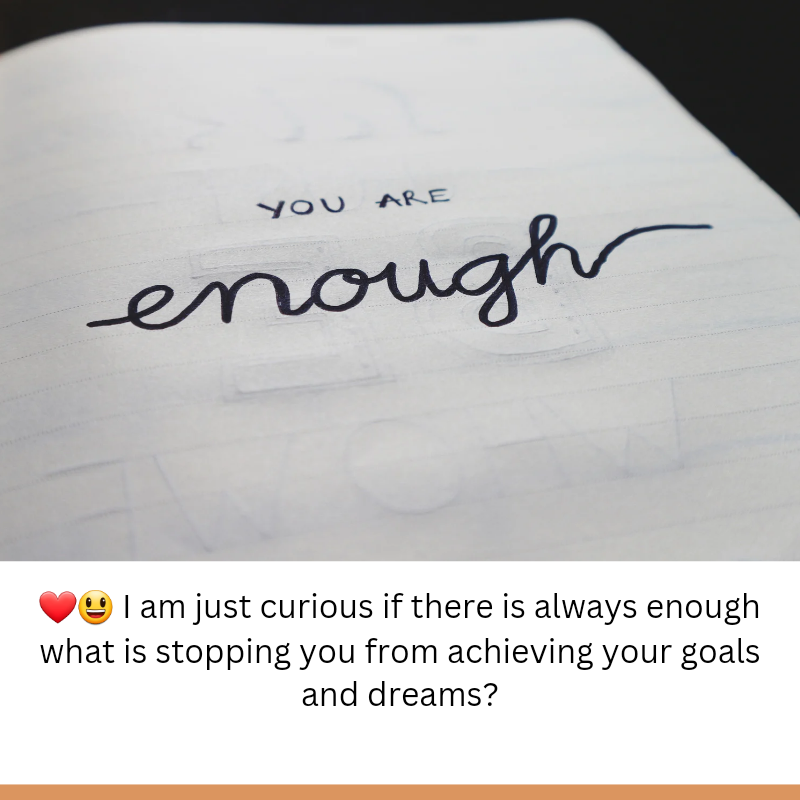 YOU ARE
enough
❤️😃 I am just curious if there is always enough
what is stopping you from achieving your goals
and dreams?